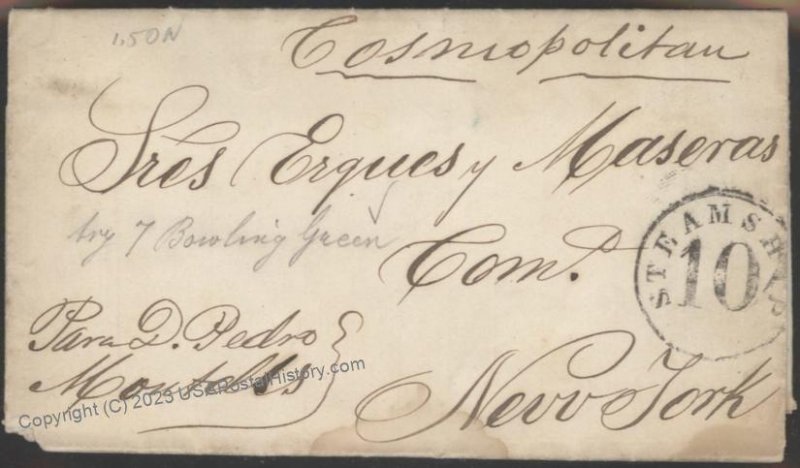 1.50N
Cosmopolitan
Sres Erques y Maseras
try 7 Bowling Green
Com.a
STEAMSHIP
10
Para D. Pedro
New York
Copyright (C) 2023 USAPostalHistory.com